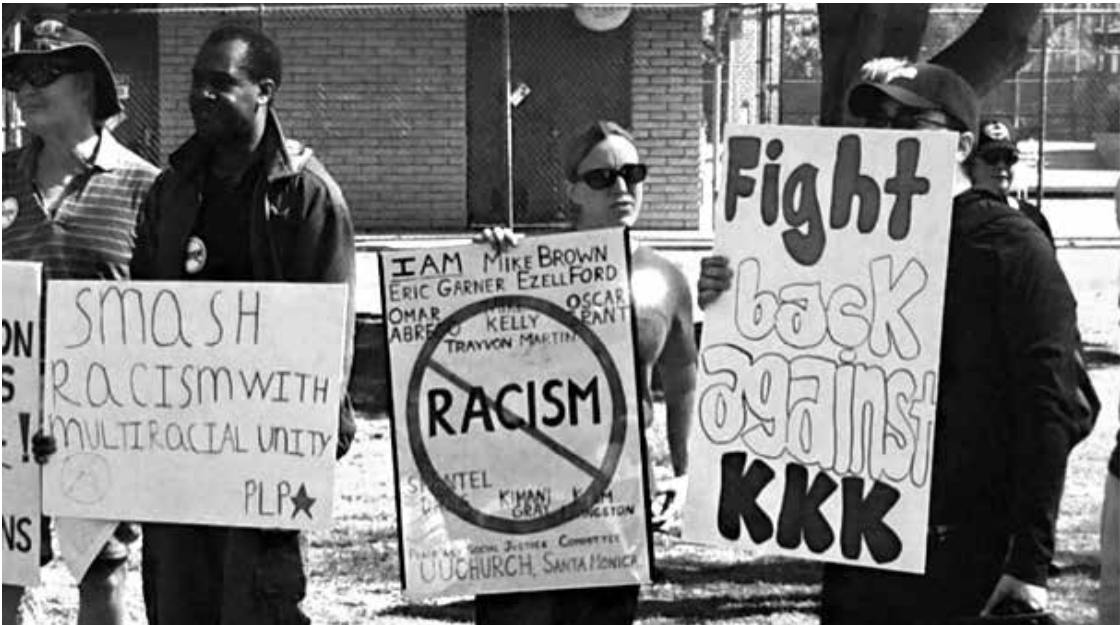 ON
S
!
NS
SMASH
RACISM WITH
MULTIRACIAL UNITY
PLP
I AM MIKE BROWN
ERIC GARNER EZELL FORD
OMAR OSCAR
ABREGO KELLY GRANT
TRAYVON MARTIN
RACISM
KIMANI
GRAY LIVINGSTON
PEACE AND SOCIAL JUSTICE COMMITTEE
UU CHURCH, SANTA MONICA
Fight
back
against
KKK